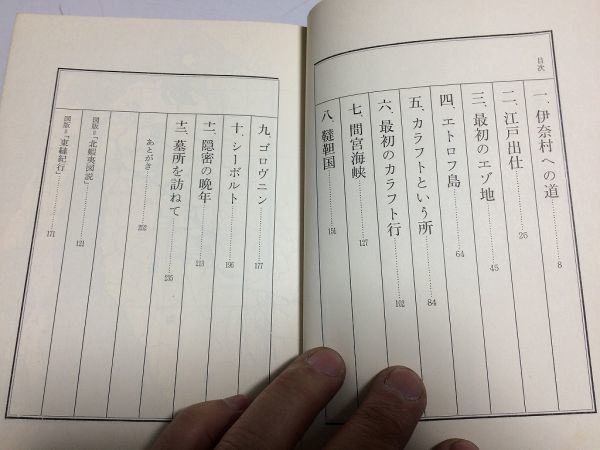 目次
一、伊奈村への道……8
二、江戸出仕……25
三、最初のエゾ地……45
四、エトロフ島……64
五、カラフトという所……84
六、最初のカラフト行……102
七、間宮海峡……127
八、韃靼国……151
九、ゴロヴニン……177
十、シーボルト……196
十一、隠密の晩年……213
十二、墓所を訪ねて……235
あとがき……252
図版=「北蝦夷図説」……121
図版=「東韃紀行」……171